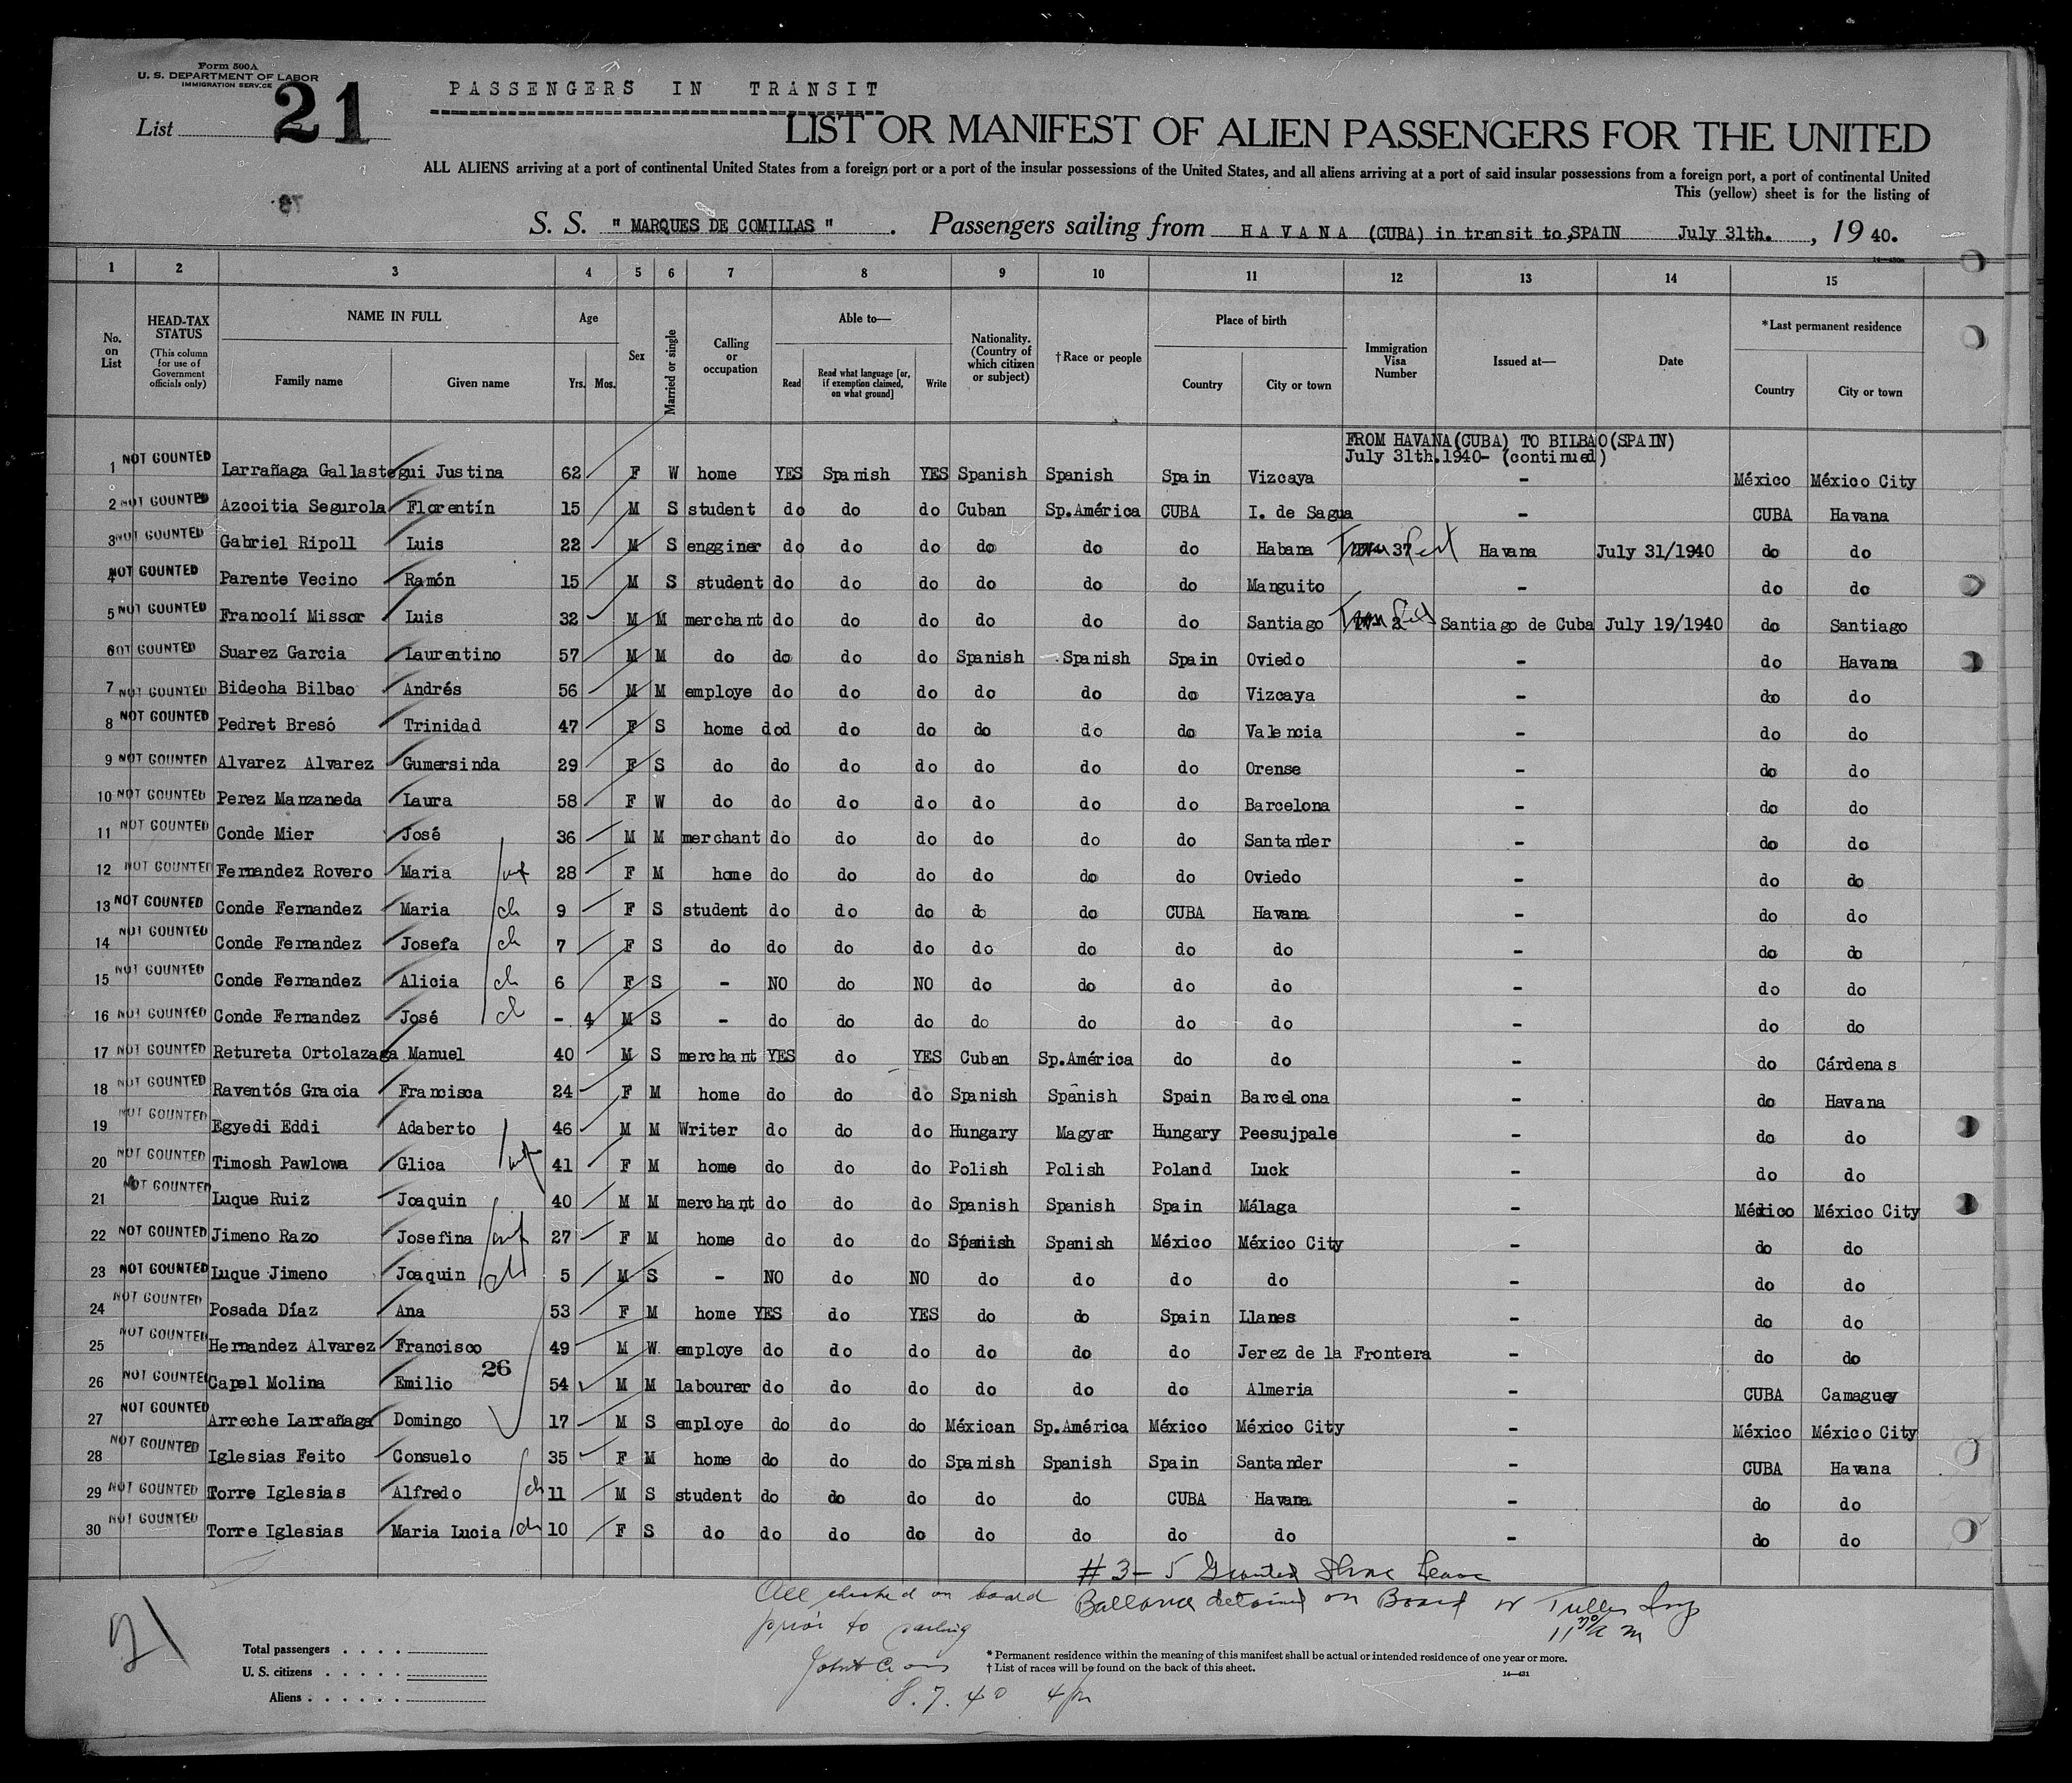 Form 500A
U. S. DEPARTMENT OF LABOR
IMMIGRATION SERVICE
List 21
PASSENGERS IN TRANSIT
LIST OR MANIFEST OF ALIEN PASSENGERS FOR THE UNITED
ALL ALIENS arriving at a port of continental United States from a foreign port or a port of the insular possessions of the United States, and all aliens arriving at a port of said insular possessions from a foreign port, a port of continental United
This (yellow) sheet is for the listing of
S. S. " MARQUES DE COMILLAS ". Passengers sailing from HAVANA (CUBA) in transit to,SPAIN July 31th. , 19 40.
1 2 3 4 5 6 7 8 9 10 11 12 13 14 15
No. on List
HEAD-TAX STATUS (This column for use of Government officials only)
NAME IN FULL Family name Given name
Age Yrs. Mos.
Sex
Married or single
Calling or occupation
Able to— Read Read what language [or, if exemption claimed, on what ground] Write
Nationality. (Country of which citizen or subject)
†Race or people
Place of birth Country City or town
Immigration Visa Number
Issued at—
Date
*Last permanent residence Country City or town
FROM HAVANA(CUBA) TO BILBAO(SPAIN)
July 31th.1940- (continued)
1 NOT COUNTED Larrañaga Gallastegui Justina 62 F W home YES Spanish YES Spanish Spanish Spain Vizcaya - México México City
2 NOT COUNTED Azcoitia Segurola Florentín 15 M S student do do do Cuban Sp.América CUBA I. de Sagua - CUBA Havana
3 NOT COUNTED Gabriel Ripoll Luis 22 M S engginer do do do do do do Habana 37 Havana July 31/1940 do do
4 NOT COUNTED Parente Vecino Ramón 15 M S student do do do do do do Manguito - do do
5 NOT COUNTED Francolí Missor Luis 32 M M merchant do do do do do do Santiago 2 Santiago de Cuba July 19/1940 do Santiago
6 NOT COUNTED Suarez Garcia Laurentino 57 M M do do do do Spanish Spanish Spain Oviedo - do Havana
7 NOT COUNTED Bidecha Bilbao Andrés 56 M M employe do do do do do do Vizcaya - do do
8 NOT COUNTED Pedret Bresó Trinidad 47 F S home dod do do do do do Valencia - do do
9 NOT COUNTED Alvarez Alvarez Gumersinda 29 F S do do do do do do do Orense - do do
10 NOT COUNTED Perez Manzaneda Laura 58 F W do do do do do do do Barcelona - do do
11 NOT COUNTED Conde Mier José 36 M M merchant do do do do do do Santander - do do
12 NOT COUNTED Fernandez Rovero Maria wf 28 F M home do do do do do do Oviedo - do do
13 NOT COUNTED Conde Fernandez Maria ch 9 F S student do do do do do CUBA Havana - do do
14 NOT COUNTED Conde Fernandez Josefa ch 7 F S do do do do do do do do - do do
15 NOT COUNTED Conde Fernandez Alicia ch 6 F S - NO do NO do do do do - do do
16 NOT COUNTED Conde Fernandez José ch - 4 M S - do do do do do do do - do do
17 NOT COUNTED Retureta Ortolazaga Manuel 40 M S merchant YES do YES Cuban Sp.América do do - do Cárdenas
18 NOT COUNTED Raventós Gracia Francisca 24 F M home do do do Spanish Spanish Spain Barcelona - do Havana
19 NOT COUNTED Egyedi Eddi Adaberto 46 M M Writer do do do Hungary Magyar Hungary Peesujpale - do do
20 NOT COUNTED Timosh Pawlowa Glica wf 41 F M home do do do Polish Polish Poland Luck - do do
21 NOT COUNTED Luque Ruiz Joaquin 40 M M merchant do do do Spanish Spanish Spain Málaga - México México City
22 NOT COUNTED Jimeno Razo Josefina wf 27 F M home do do do Spanish Spanish México México City - do do
23 NOT COUNTED Luque Jimeno Joaquin ch 5 M S - NO do NO do do do do - do do
24 NOT COUNTED Posada Díaz Ana 53 F M home YES do YES do do Spain Llanes - do do
25 NOT COUNTED Hernandez Alvarez Francisco 49 M W. employe do do do do do do Jerez de la Frontera - do do
26
26 NOT COUNTED Capel Molina Emilio 54 M M labourer do do do do do do Almeria - CUBA Camaguey
27 NOT COUNTED Arreche Larrañaga Domingo 17 M S employe do do do Méxican Sp.América México México City - México México City
28 NOT COUNTED Iglesias Feito Consuelo 35 F M home do do do Spanish Spanish Spain Santander - CUBA Havana
29 NOT COUNTED Torre Iglesias Alfredo ch 11 M S student do do do do do CUBA Havana - do do
30 NOT COUNTED Torre Iglesias Maria Lucia ch 10 F S do do do do do do do do - do do
# 3 - 5 Granted Shore Leave
All checked on board
Ballance detained on Board W Tuller Insp
prior to sailing
11 30/ A M
21
8.7.40 4 pm
Total passengers
U. S. citizens
Aliens
* Permanent residence within the meaning of this manifest shall be actual or intended residence of one year or more.
† List of races will be found on the back of this sheet.
14—431